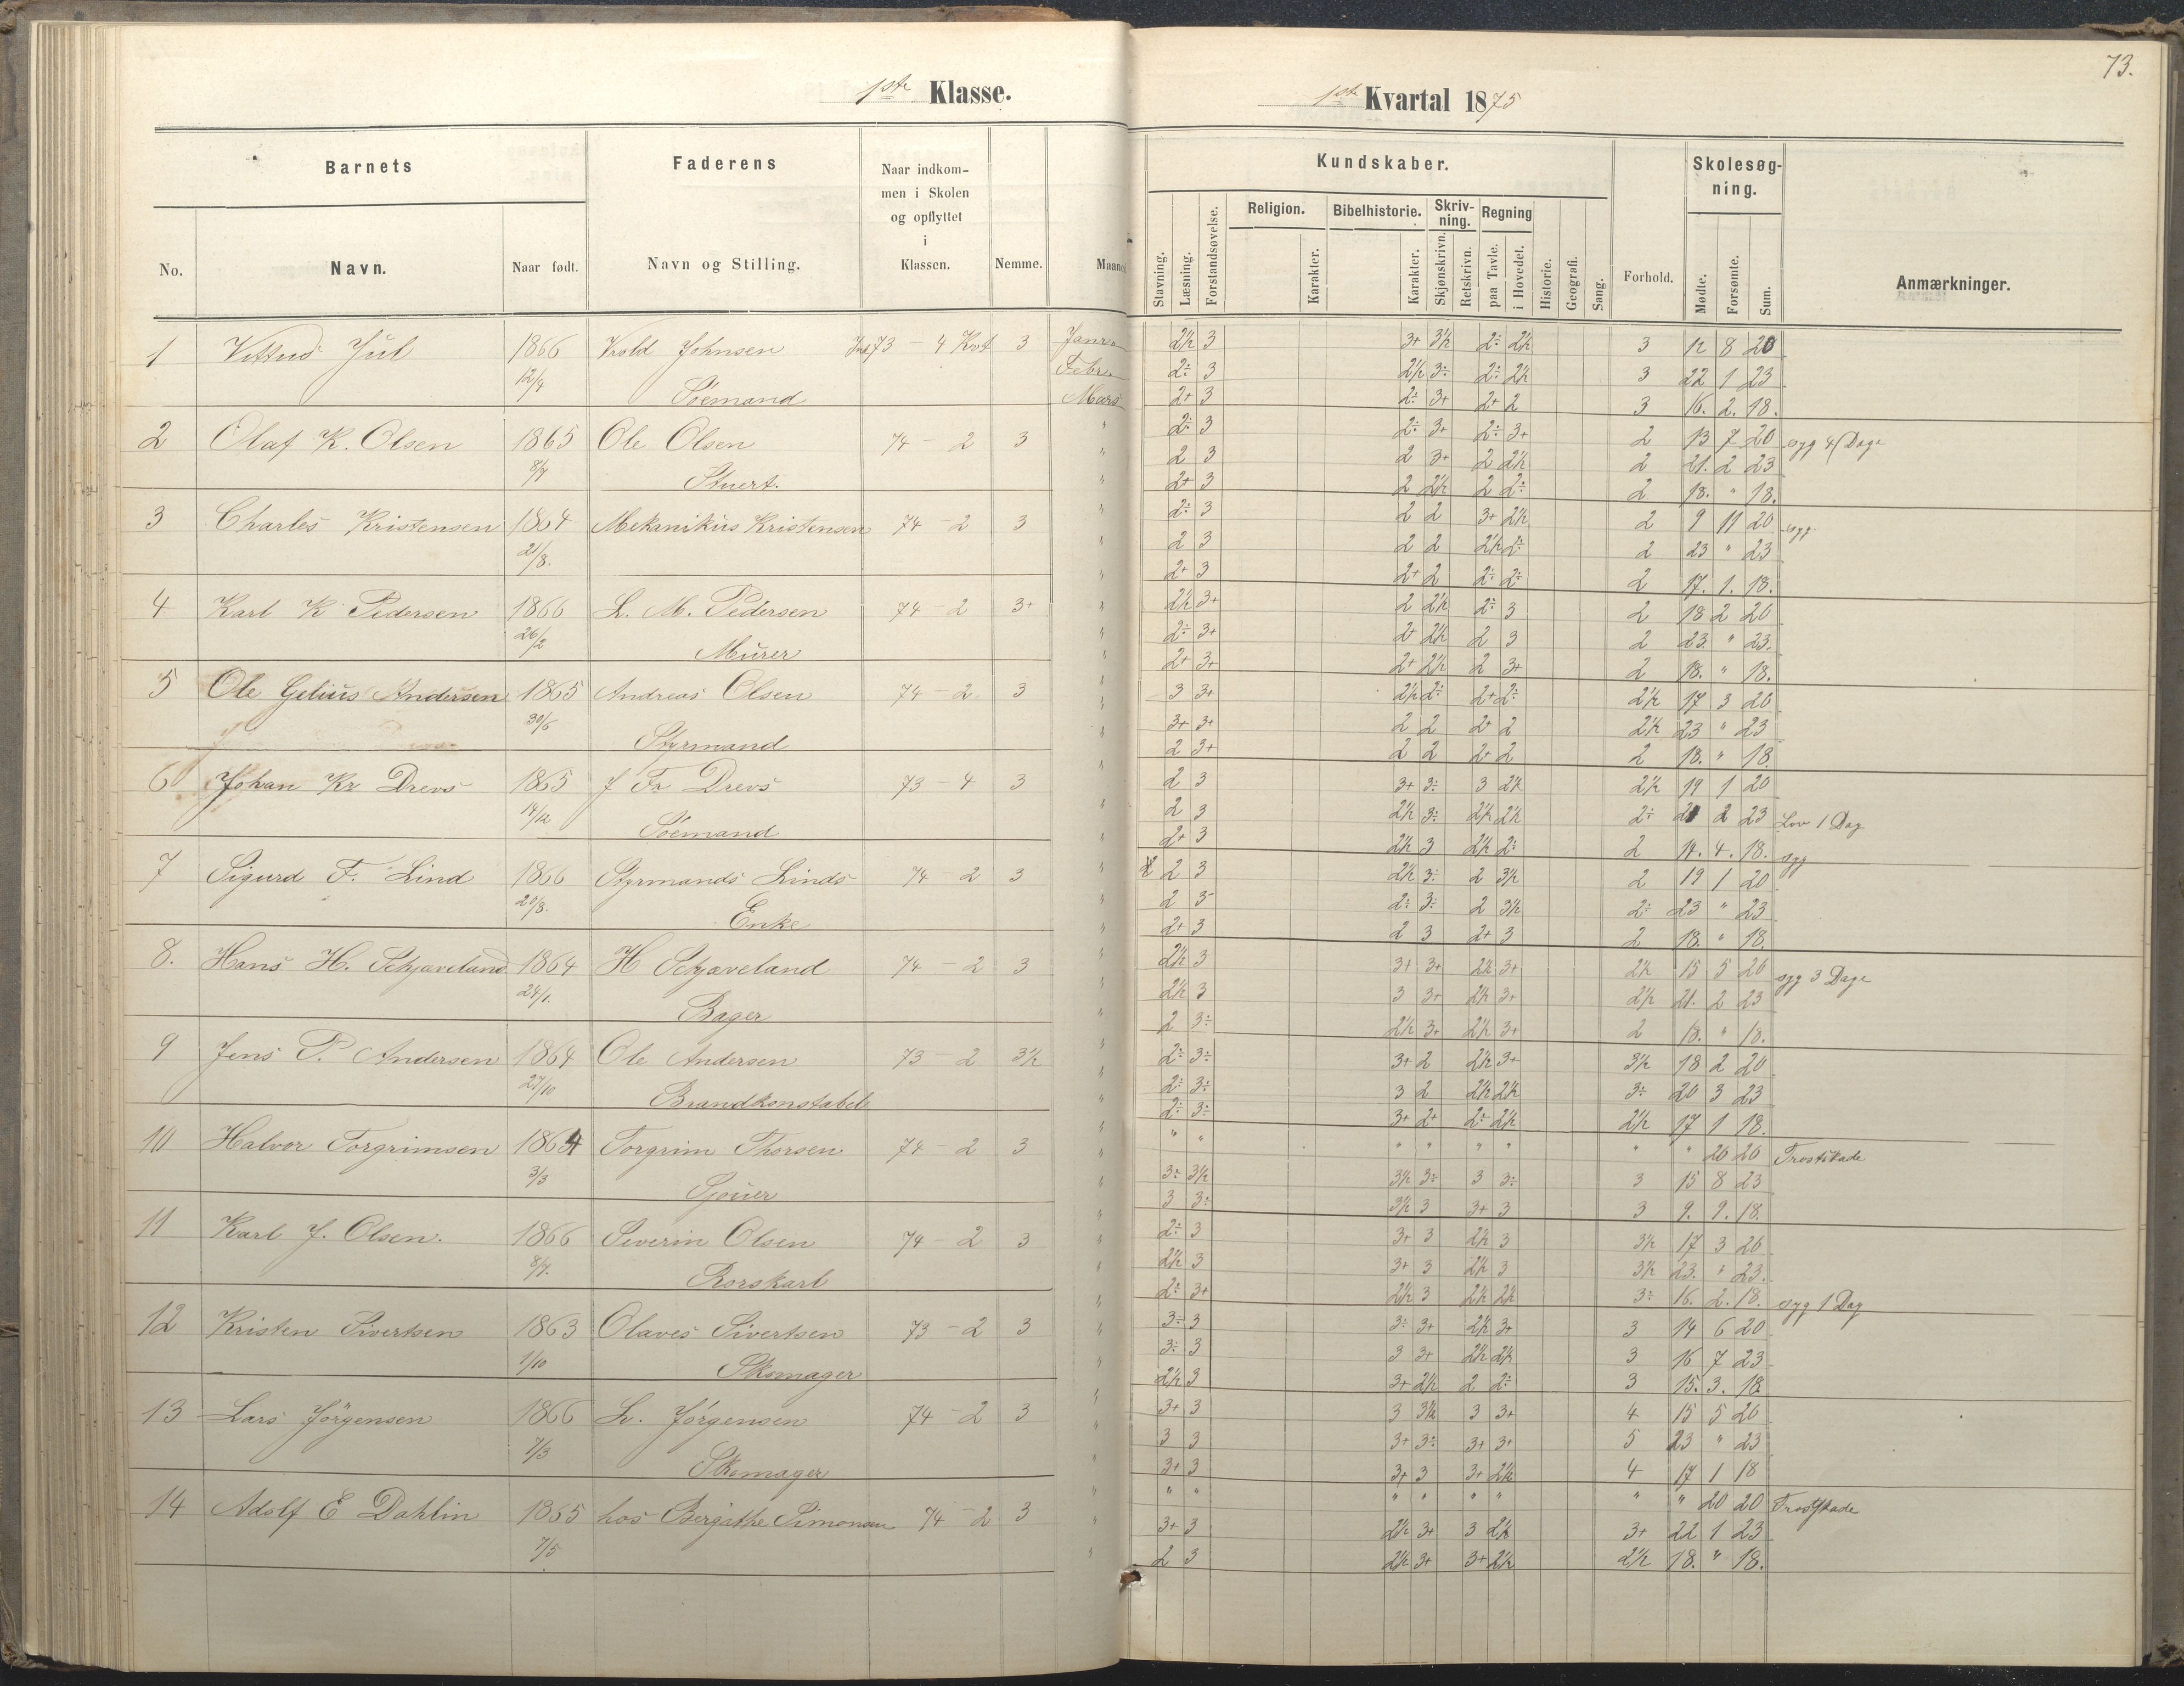 73.
1ste Klasse.
1ste Kvartal 1875
Barnets
Faderens
Naar indkommen i Skolen og opflyttet i Klassen.
No.
Navn.
Naar født.
Navn og Stilling.
Nemme.
Kundskaber.
Stavning.
Læsning.
Forstandsøvelse.
Religion.
Karakter.
Bibelhistorie.
Karakter.
Skrivning.
Skjønskrivn.
Retskrivn.
Regning
paa Tavle.
i Hovedet.
Historie.
Geografi.
Sang.
Forhold.
Skolesøgning.
Mødte.
Forsømte.
Sum.
Anmærkninger.
1 Jul 1866 Johnsen 73 - 4 Kvt 3 Janr 2½ 3 3+ 3½ 2÷ 2½ 3 12 8 20
12/4 Søemand Febr 2÷ 3 2½ 3÷ 2÷ 2½ 3 22 1 23
Mars 2+ 3 2÷ 3+ 2+ 2 3 16. 2. 18.
2 Olaf K. Olsen 1865 Ole Olsen 74 - 2 3 " 2÷ 3 2÷ 3+ 2÷ 3+ 2 13 7 20 syg 4 Dage
8/7 Stuert. " 2 3 2 3+ 2 2½ 2 21. 2 23
" 2+ 3 2 2½ 2 2÷ 2 18. " 18.
3 Charles Kristensen 1864 Mekanikus Kristensen 74 - 2 3 " 2÷ 3 2 2 3+ 2½ 2 9 11 20 syg.
21/8. " 2 3 2 2 2½ 2÷ 2 23 " 23
" 2+ 3 2+ 2 2÷ 2÷ 2 17. 1. 18.
4 Karl K Pedersen 1866 L. M. Pedersen 74 - 2 3+ " 2½ 3+ 2 2½ 2÷ 3 2 18 2 20
26/2 Murer " 2÷ 3+ 2+ 2½ 2 3 2 23. " 23.
" 2+ 3+ 2+ 2½ 2 3+ 2 18. " 18.
5 Ole Gelius Andersen 1865 Andreas Olsen 74 - 2 3 " 3 3+ 2½ 2÷ 2+ 2÷ 2½ 17 3 20
30/6 Styrmand " 3+ 3+ 2 2 2+ 2 2½ 23 " 23
" 2 3+ 2 2 2+ 2 2 18. " 18.
6 Johan Kr Drevs 1865 J Fr Drevs 73 - 4 3 " 2 3 3+ 3÷ 3 2½ 2½ 19 1 20
14/12 Søemand " 2 3 2½ 3÷ 2½ 2½ 2÷ 21 2 23 Lov 1 Dag
" 2+ 3 2½ 3 2½ 2÷ 2 14. 4. 18. syg
7 Sigurd F. Lind 1866 Styrmands Linds 74 - 2 3 " 2 3 2½ 3÷ 2 3½ 2 19 1 20
20/8. Enke " 2 3 2÷ 3÷ 2 3½ 2÷ 23 " 23
" 2+ 3 2 3 2+ 3 2 18. " 18.
8. Hans H. Schjaveland 1864 H Schjaveland 74 - 2 3 " 2½ 3 3+ 3+ 2½ 3+ 2½ 15 5 20 syg 3 Dage
24/1. Bager " 2½ 3 3 3+ 2½ 3+ 2½ 21. 2 23
" 2 3÷ 2½ 3+ 2½ 3+ 2 18. " 18.
9 Jens P. Andersen 1864 Ole Andersen 73 - 2 3½ " 2÷ 3÷ 3+ 2 2½ 3+ 3½ 18 2 20
27/10 Brandkonstabel " 2÷ 3÷ 3 2 2½ 2½ 3÷ 20 3 23
" 2÷ 3÷ 3+ 2+ 2÷ 2½ 2½ 17 1 18.
10 Halvor Torgrimsen 1864 Torgrim Thorsen 74 - 2 3 " " " " " " " " " 20 20 Frostskade
3/3 Sjouer " 3÷ 3½ 3½ 3÷ 3 3÷ 3 15 8 23
" 3 3÷ 3½ 3 3+ 3 3 9. 9. 18.
11 Karl J. Olsen. 1866 Severin Olsen 74 - 2 3 " 2÷ 3 3+ 3 2½ 3 3½ 17 3 20
8/7. Rorskarl " 2½ 3 3+ 3 2½ 3 3½ 23. " 23.
" 2÷ 3+ 2½ 3 2½ 2½ 3÷ 16. 2. 18. syg 1 Dag
12 Kristen Sivertsen 1863 Olaves Sivertsen 73 - 2 3 " 3÷ 3 3÷ 3+ 2½ 3+ 3 14 6 20
1/10 Skomager " 3÷ 3 3 3+ 2½ 2½ 3 16 7 23
" 2½ 3 3+ 2½ 2 2÷ 3 15. 3. 18
13 Lars Jörgensen 1866 L. Jörgensen 74 - 2 3 " 3+ 3 3 3½ 3 3+ 4 15 5 20
7/3 Skomager " 3 3 3+ 3÷ 3+ 3+ 5 23 " 23
" 3+ 3 3+ 3 3+ 2½ 4 17 1 18
14 Adolf E Dahlin 1865 hos Bergithe Simonsen 74 - 2 3 " " " " " " " " " 20 20 Frostskade
7/5 " 3+ 3 2½ 3+ 3 2½ 3+ 22 1 23
" 2 3 2½ 3+ 3+ 2½ 2½ 18. " 18.